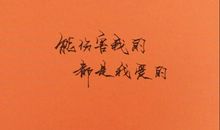 能伤害我的
都是我爱的